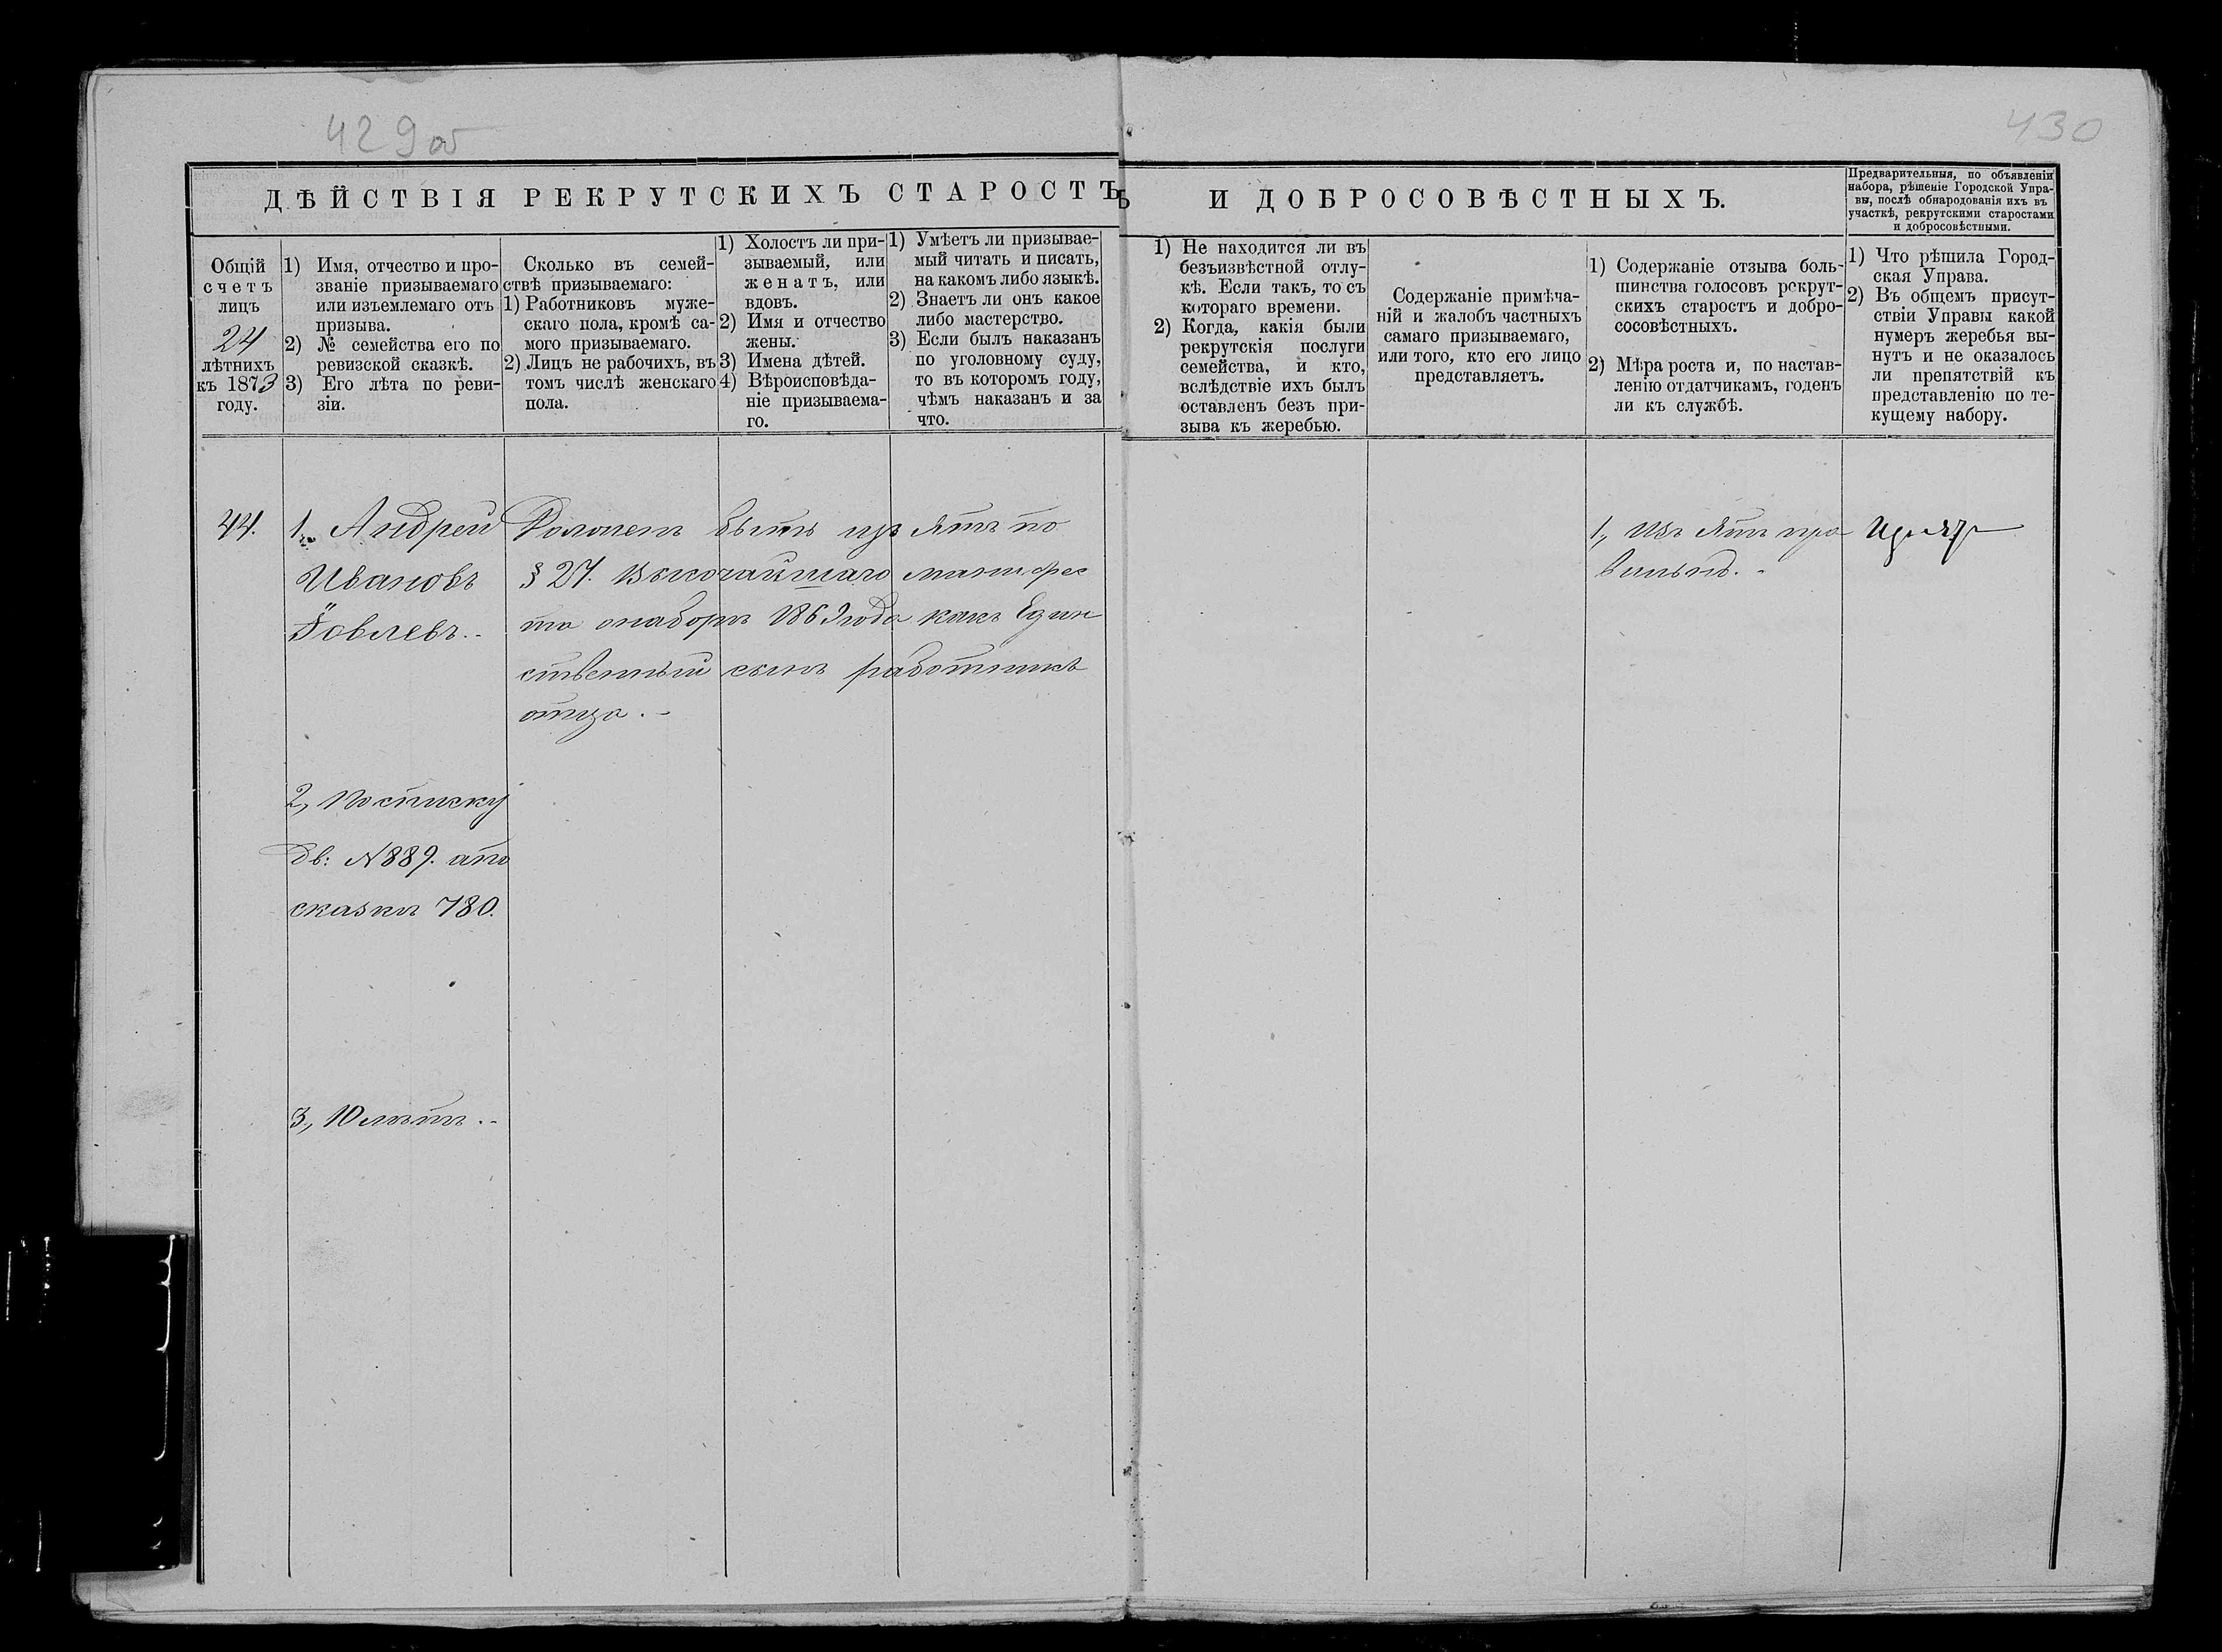 429 об
430
ДѢЙСТВІЯ РЕКРУТСКИХЪ СТАРОСТЪ И ДОБРОСОВѢСТНЫХЪ.
Предварительныя, по объявленіи
набора, рѣшеніе Городской Упра-
вы, послѣ обнародованія ихъ въ
участкѣ, рекрутскими старостами
и добросовѣстными.
Общій
счетъ
лицъ
24
лѣтнихъ
къ 1873
году.
1) Имя, отчество и про-
званіе призываемаго
или изъемлемаго отъ
призыва.
2) № семейства его по
ревизской сказкѣ.
3) Его лѣта по реви-
зіи.
Сколько въ семей-
ствѣ призываемаго:
1) Работниковъ муже-
скаго пола, кромѣ са-
мого призываемаго.
2) Лицъ не рабочихъ, въ
томъ числѣ женскаго
пола.
1) Холостъ ли при-
зываемый, или
женатъ, или
вдовъ.
2) Имя и отчество
жены.
3) Имена дѣтей.
4) Вѣроисповѣда-
ніе призываема-
го.
1) Умѣетъ ли призывае-
мый читать и писать,
на какомъ либо языкѣ.
2) Знаетъ ли онъ какое
либо мастерство.
3) Если былъ наказанъ
по уголовному суду,
то въ которомъ году,
чѣмъ наказанъ и за
что.
1) Не находится ли въ
безъизвѣстной отлу-
кѣ. Если такъ, то съ
котораго времени.
2) Когда, какія были
рекрутскія послуги
семейства, и кто,
вслѣдствіе ихъ былъ
оставленъ безъ при-
зыва къ жеребью.
Содержаніе примѣча-
ній и жалобъ частныхъ
самаго призываемаго,
или того, кто его лицо
представляетъ.
1) Содержаніе отзыва боль-
шинства голосовъ рекрут-
скихъ старостъ и добро-
сосовѣстныхъ.
2) Мѣра роста и, по настав-
ленію отдатчикамъ, годенъ
ли къ службѣ.
1) Что рѣшила Город-
ская Управа.
2) Въ общемъ присут-
ствіи Управы какой
нумеръ жеребья вы-
нутъ и не оказалось
ли препятствій къ
представленію по те-
кущему набору.
44.
1, Андрей
Ивановъ
Іовлевъ.
2, По списку
дв: №889. а по
сказкѣ 780.
3, 10 лѣтъ.
Долженъ быть изъятъ по
§ 27. Высочайшаго манифес
та о наборѣ 1869 года какъ Един
ственный сынъ работникъ
отца.
1, Изъятъ пра
вильно.
Изъятъ